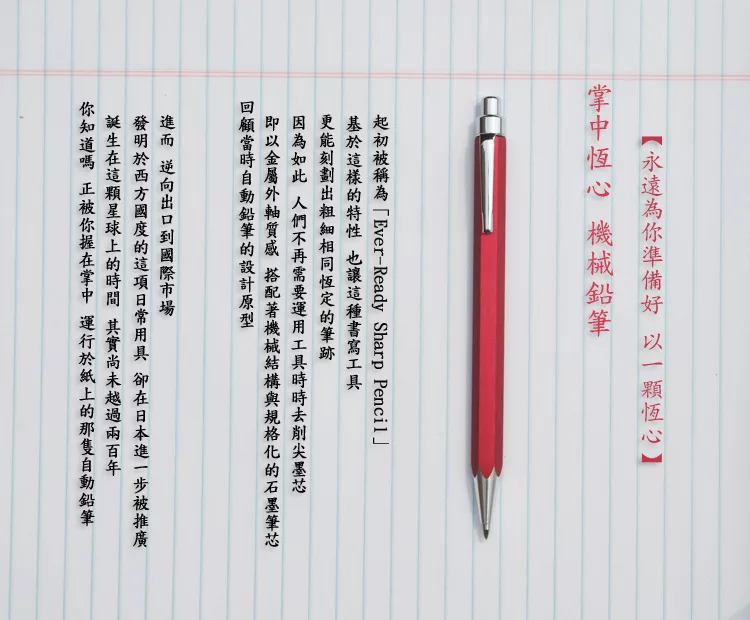 你知道嗎 正被你握在掌中 運行於紙上的那隻自動鉛筆
誕生在這顆星球上的時間 其實尚未越過兩百年
發明於西方國度的這項日常用具 卻在日本進一步被推廣
進而 逆向出口到國際市場
回顧當時自動鉛筆的設計原型
即以金屬外軸質感 搭配著機械結構與規格化的石墨筆芯
因為如此 人們不再需要運用工具時時去削尖墨芯
更能刻劃出粗細相同恆定的筆跡
基於這樣的特性 也讓這種書寫工具
起初被稱為「Ever-Ready Sharp Pencil」
掌中恆心 機械鉛筆
【永遠為你準備好 以一顆恆心】